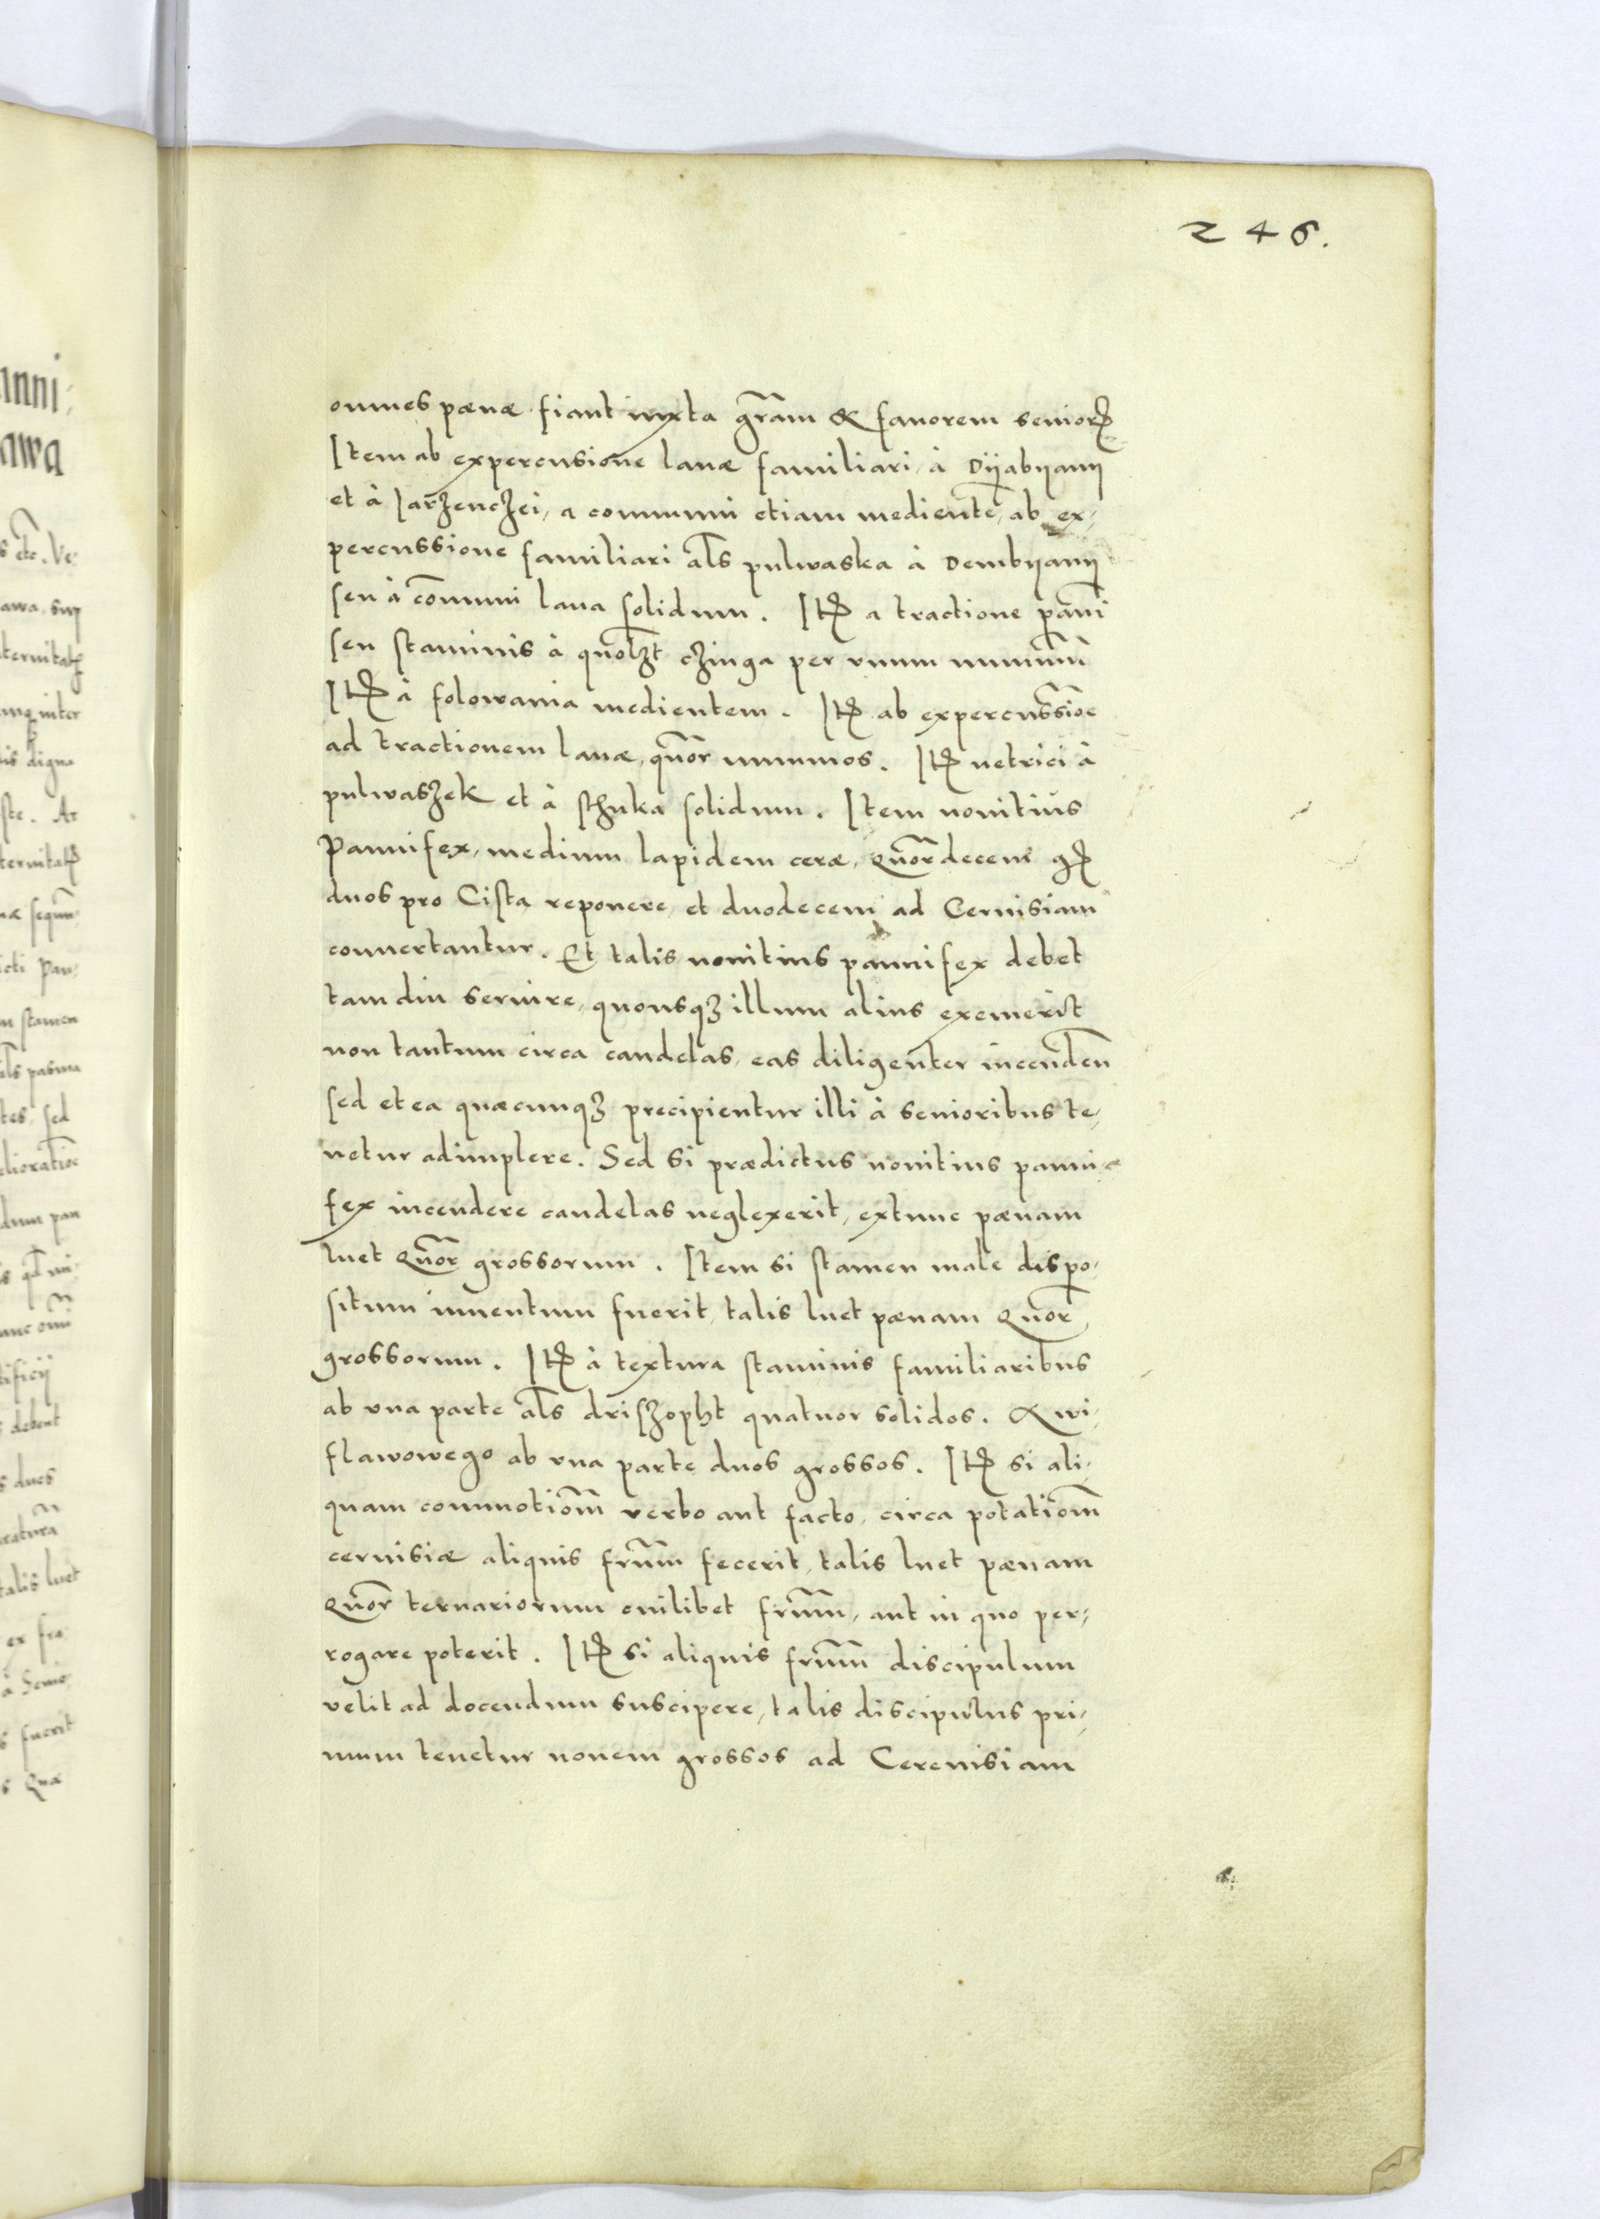 246.
omnes pænæ fiant iuxta grãm & fauorem senior
Item ab expercusione lanæ familiari, à Dÿabÿanÿ
et à Iarzenczei, a communi etiam mediente, ab ex,
percussione familiari als pulwaska à Dembÿanÿ
seu à cõmuni lana solidum. Itē a tractione pãni
seu staminis à quolzt czinga per vnum nummũ
Itē à folowania medientem. Itē ab expercussiõe
ad tractionem lanæ, quõr nummos. Itē netrici à
pulwaszek et à sthuka solidum. Item nouitius
Pannifex, medium lapidem ceræ, Quõrdecem gr
duos pro Cista reponere, et duodecem ad Ceruisiam
conuertantur. Et talis nouitius pannifex debet
tam diu seruire, quousqz illum alius exemerit
non tantum circa candelas, eas diligenter incendeñ
sed et ea quæcunqz precipientur illi à senioribus te,
netur adimplere. Sed si prædictus nouitius panni
fex incendere candelas neglexerit, extunc pænam
luet Quõr grossorum. Item si stamen male dispo,
situm inuentum fuerit, talis luet pænam Quõr
grossorum. Itē à textura staminis familiaribus
ab vna parte als driszopht quatuor solidos. & wi,
flawowego ab vna parte duos grossos. Itē si ali,
quam commotiõm verbo aut facto, circa potatiõm
ceruisiæ aliquis frũm fecerit, talis luet pænam
Quõr ternariorum cuilibet frũm, aut in quo per,
rogare poterit. Itē si aliquis frũm discipulum
velit ad docendum suscipere, talis discipulus pri,
mum tenetur nouem grossos ad Cereuisiam